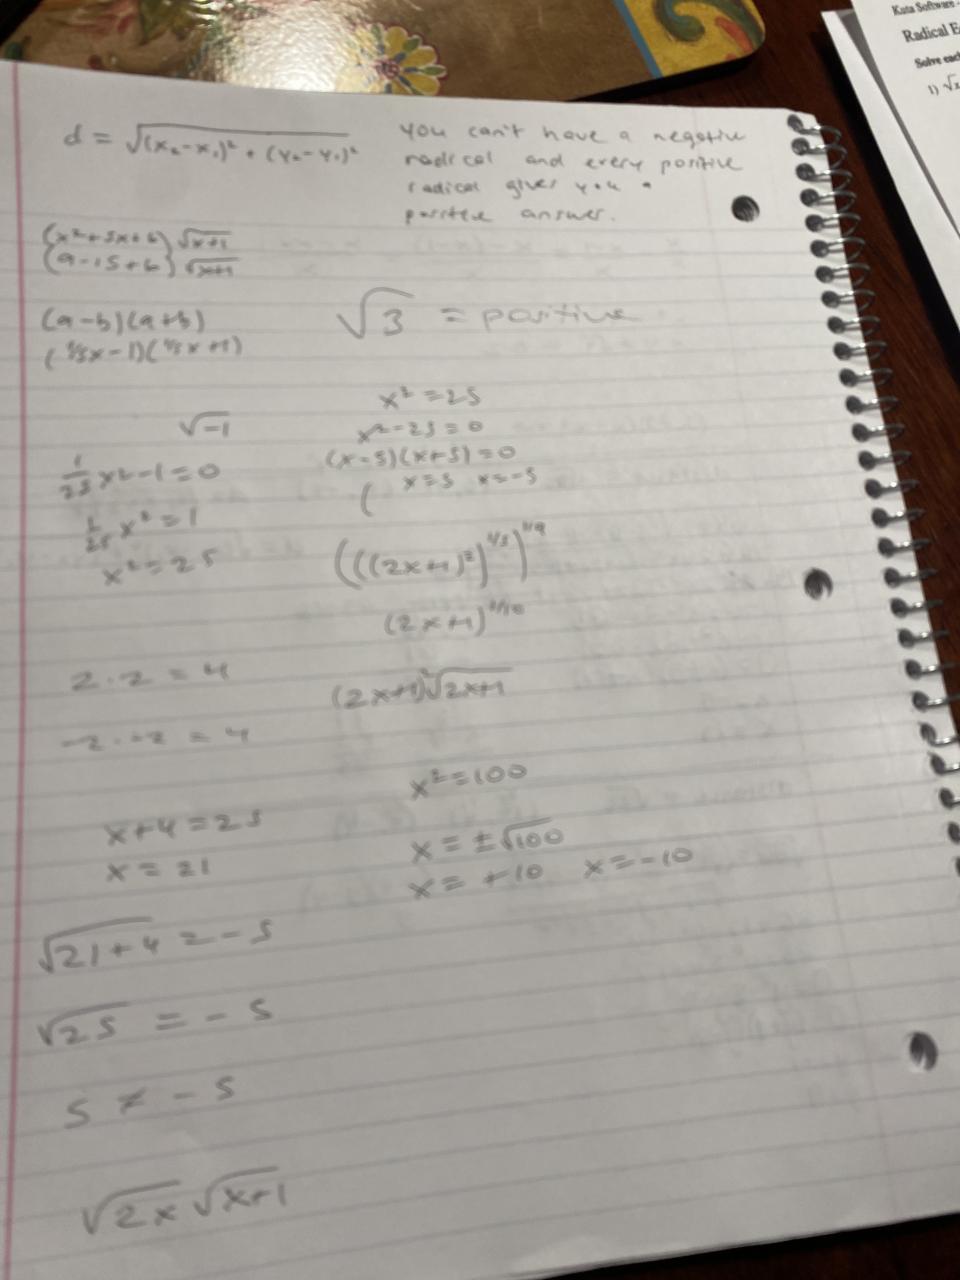 Kuta Software -
Radical E
Solve eac
1) √x
d = √(x₂-x₁)² + (y₂-y₁)²
You can't have a negative
radical and every positive
radical gives you a
positive answer.
(x²+5x+6) √x+1
(9-15+6) √x+1
(a-b)(a+b)
(1/5x-1)(1/5x+1)
√3 = positive
√-1
1/25 x²-1=0
1/25 x²=1
x²=25
x²=25
x²-25=0
(x-5)(x+5)=0
x=5 x=-5
(
(((2x+1)²)^1/5)^1/4
(2x+1)
(2x+1)√2x+1
2·2=4
-2·-2=4
x+4=25
x=21
x²=100
x=±√100
x=+10 x=-10
√21+4=-5
√25=-5
5≠-5
√2x √x+1